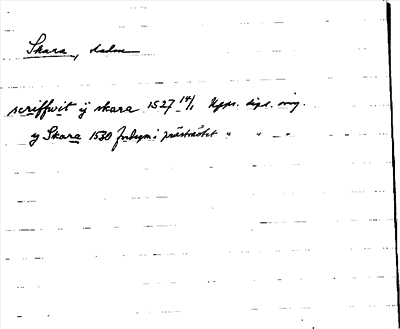 Skara, staden
scriffwit ÿ skara 1527 14/1 Upps. dipl. orig.
y Skara 1530 i prästmötet " " "